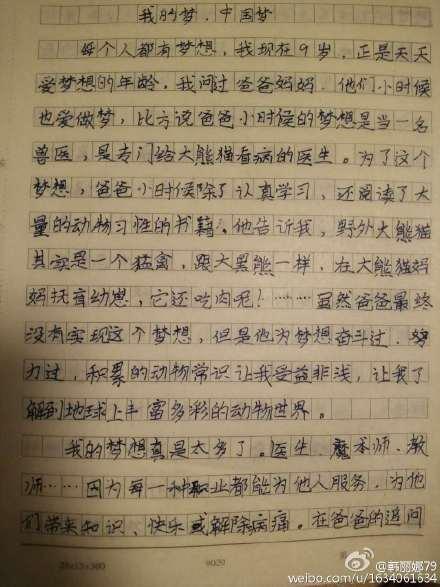 我的梦．中国梦
每个人都有梦想，我现在9岁，正是天天
爱梦想的年龄，我问过爸爸妈妈，他们小时候
也爱做梦，比方说爸爸小时候的梦想是当一名
兽医，是专门给大熊猫看病的医生。为了这个
梦想，爸爸小时候除了认真学习，还阅读了大
量的动物习性的书籍。他告诉我，野外大熊猫
其实是一个猛禽，跟大黑熊一样，在大熊猫妈
妈抚育幼崽，它还吃肉呢！……虽然爸爸最终
没有实现这个梦想，但是他为梦想奋斗过，努
力过，积累的动物常识让我受益非浅，让我了
解到地球上丰富多彩的动物世界。
我的梦想真是太多了。医生、魔术师、教
师……因为每一种职业都能为他人服务，为他
们带来知识、快乐或解除病痛。在爸爸的追问
@韩丽娜79
weibo.com/u/1634061634